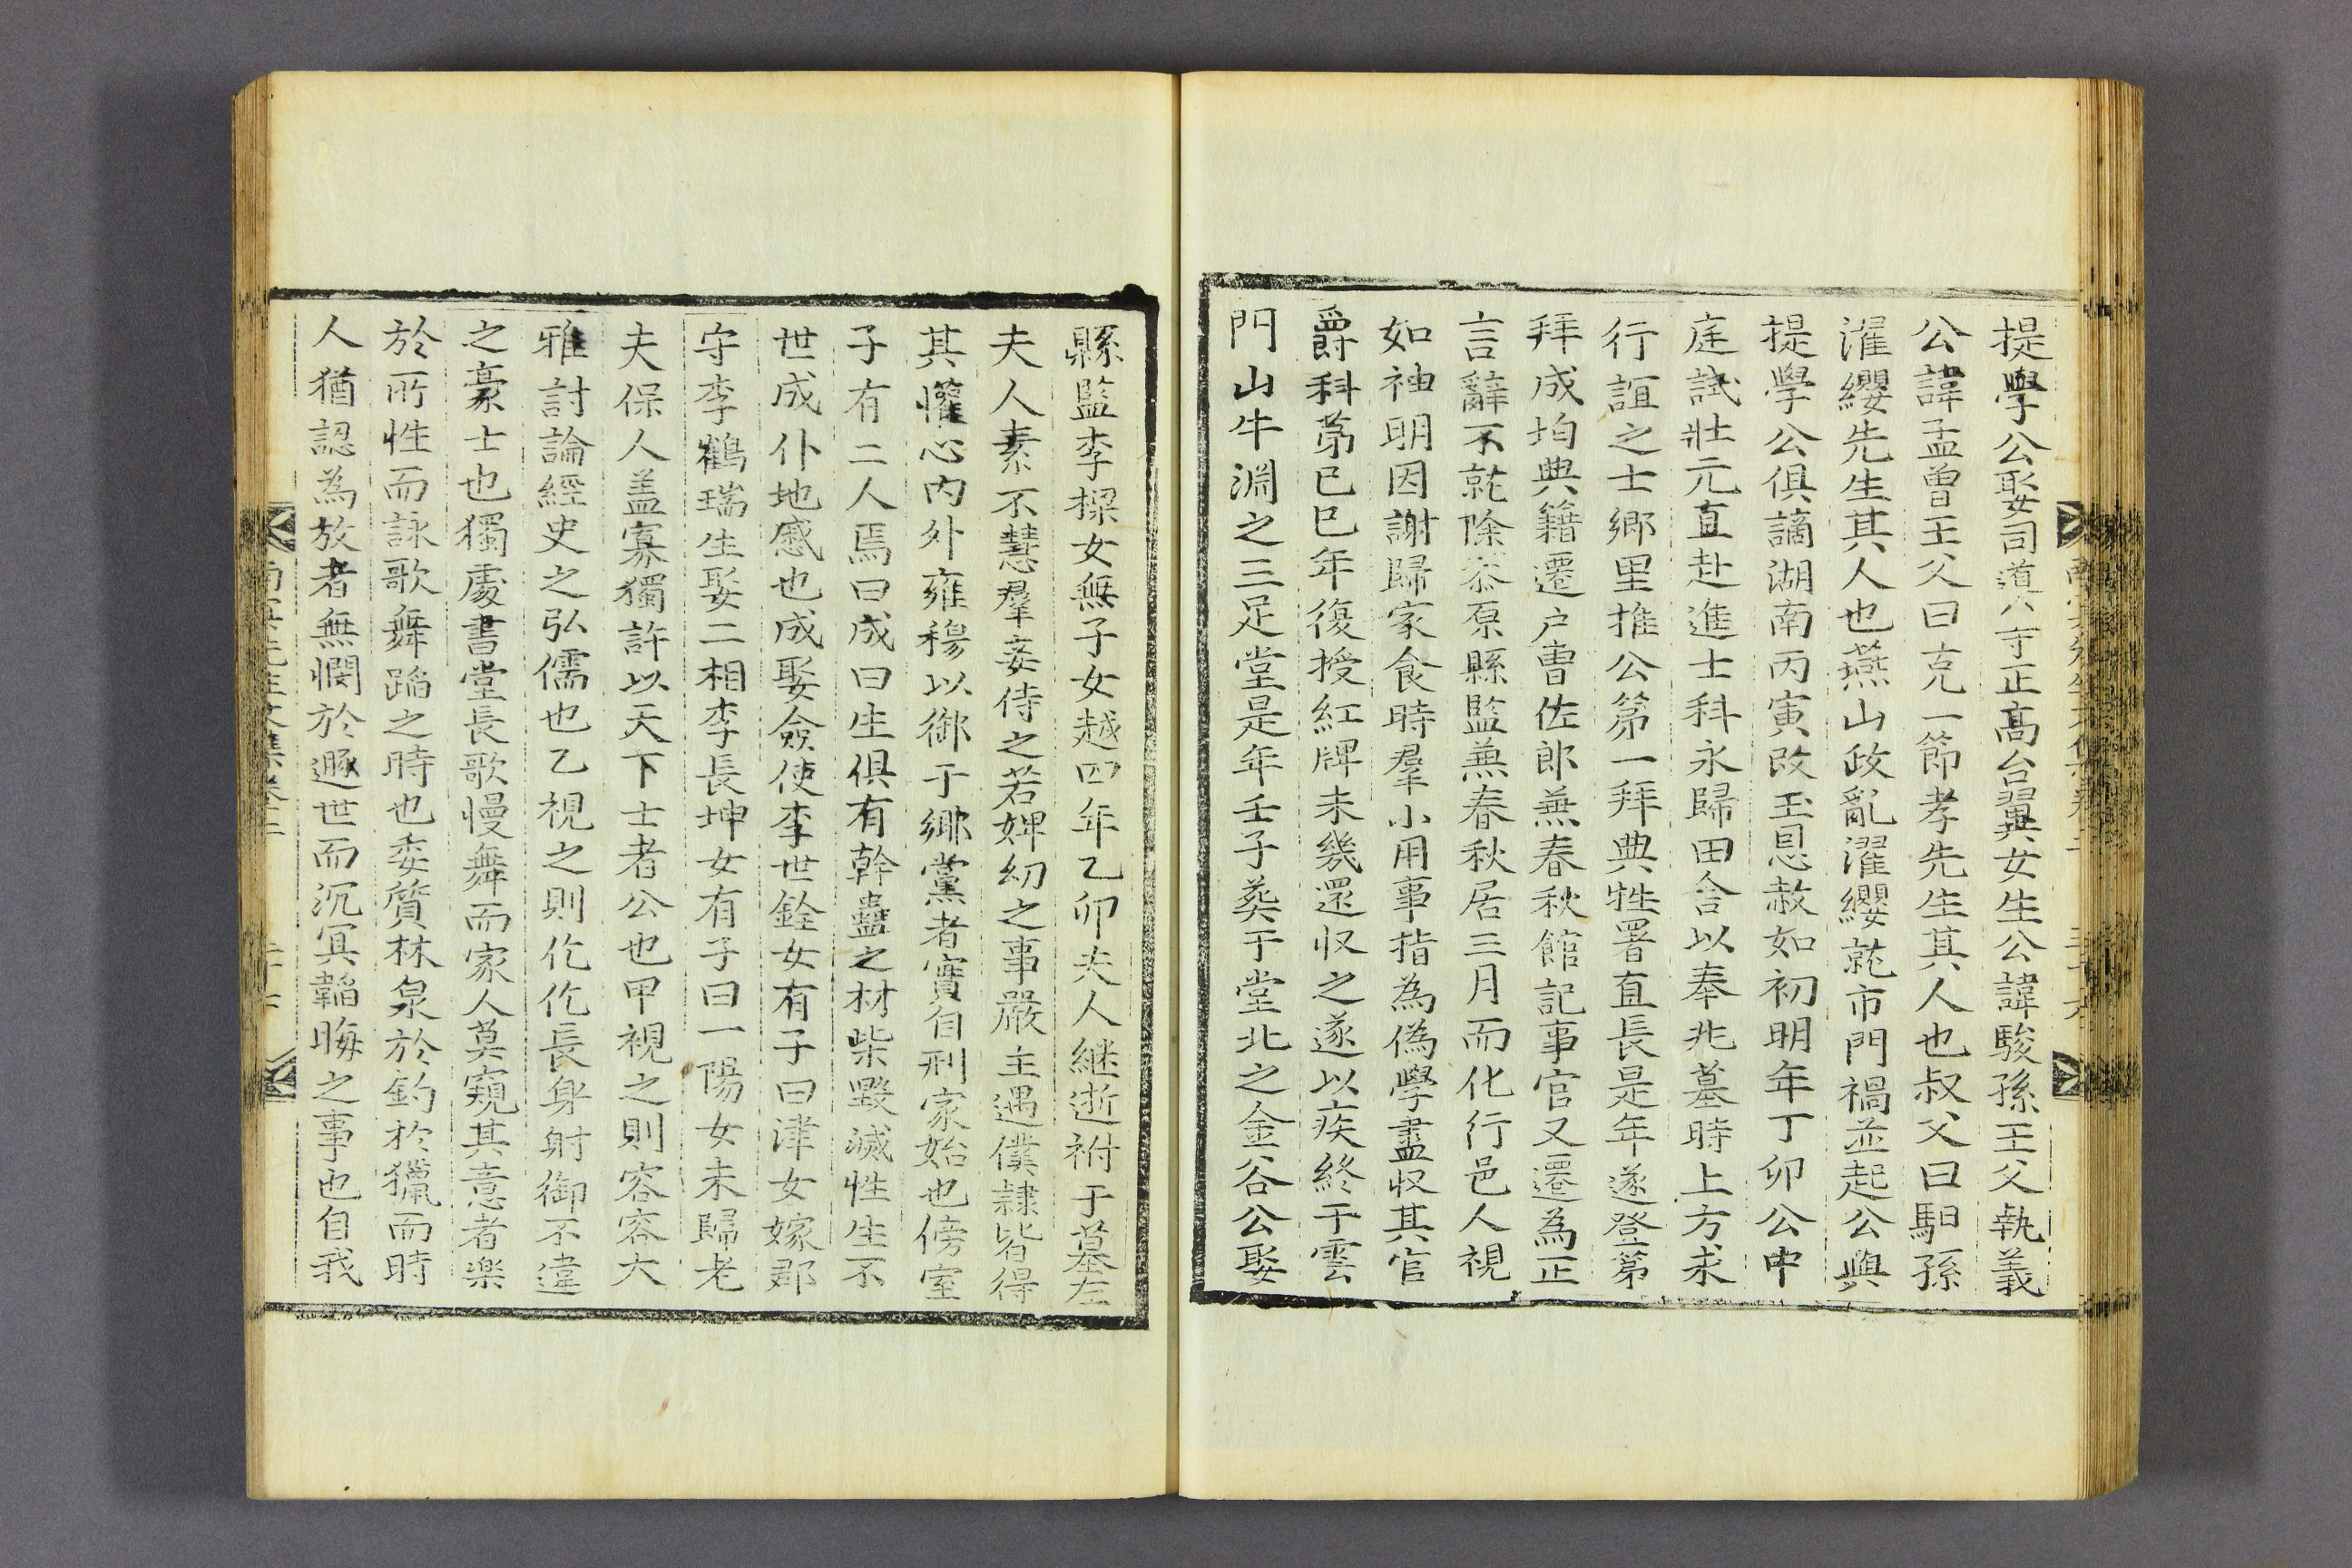 提學公娶司道寺正高台翼女生公諱駿孫王父執義
公諱孟曾王父曰克一節孝先生其人也叔父曰馹孫
濯纓先生其人也燕山政亂濯纓就市門禍並起公與
提學公俱謫湖南丙寅改玉恩赦如初明年丁卯公中
庭試壯元直赴進士科永歸田舍以奉兆墓時上方求
行誼之士鄉里推公第一拜典牲署直長是年遂登第
拜成均典籍遷戶曹佐郎兼春秋館記事官又遷為正
言辭不就除黍原縣監兼春秋居三月而化行邑人視
如神明因謝歸家食時羣小用事指為偽學盡收其官
爵科第己巳年復授紅牌未幾還收之遂以疾終于雲
門山牛淵之三足堂是年壬子葬于堂北之金谷公娶
縣監李樑女無子女越四年乙卯夫人継逝祔于墓左
夫人素不慧羣妾侍之若婢幼之事嚴主遇僕隸皆得
其懽心內外雍穆以御于鄉黨者實自刑家始也傍室
子有二人焉曰成曰生俱有幹蠱之材柴毀滅性生不
世成仆地感也成娶僉使李世銓女有子曰津女嫁郡
守李鶴瑞生娶二相李長坤女有子曰一陽女未歸老
夫保人盖寡獨許以天下士者公也甲視之則容容大
雅討論經史之弘儒也乙視之則仡仡長身射御不違
之豪士也獨處書堂長歌慢舞而家人莫窺其意者樂
於所性而詠歌舞蹈之時也委質林泉於釣於獵而時
人猶認為放者無悶於遯世而沉冥韜晦之事也自我
南冥先生文集卷二